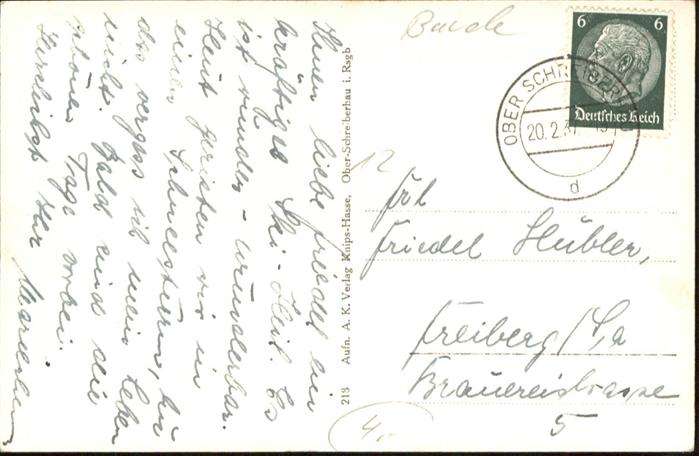 Ihnen liebe Friedel ein
kräftiges Ski-Heil. Es
ist wunder-wunderbar.
Heut gerieten wir in
einen Schneesturm,
das vergess ich mein Leben
nicht. Bald sind die
schönen Tage vorbei.
Herzlichst Ihr
218 Aufn. A. K. Verlag Knips-Hasse, Ober-Schreiberhau i. Rsgb
Baude
6 6
Deutsches Reich
OBER SCHREIBERHAU
20.2.37
d
12
Frl
Friedel Hübler,
Freiberg/Sa
Brauereistrasse
5
4,-